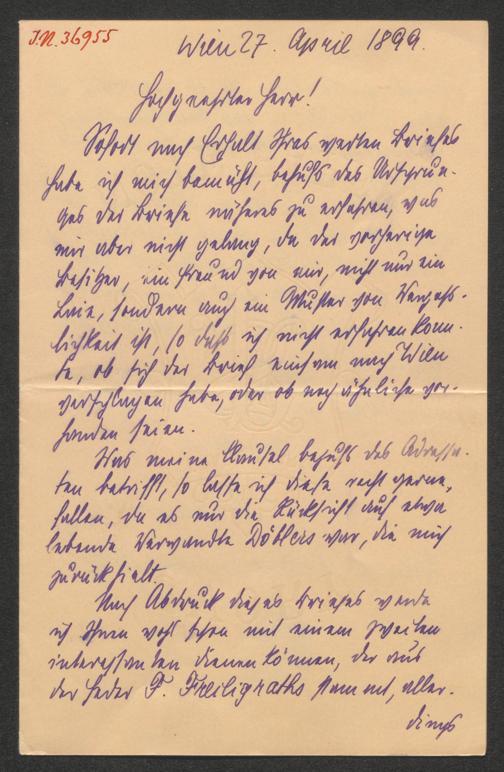 J.N. 36955
Wien 27. April 1899.
Hochgeehrter Herr!
Sofort nach Erhalt Ihres werten Briefes
habe ich mich bemüht, behufs des Ursprun-
ges der Briefe näheres zu erfahren, was
mir aber nicht gelang, da der vorherige
Besitzer, ein Freund von mir, nicht nur ein
Laie, sondern auch ein Muster von Vergess-
lichkeit ist, so dass ich nicht erfahren konn-
te, ob sich der Brief einsam nach Wien
verschlagen habe, oder ob noch ähnliche vor-
handen seien.
Was meine Clausel behufs des Adressa-
ten betrifft, so lasse ich diese recht gerne,
fallen, da es nur die Rücksicht auf etwa
lebende Verwandte Döblers war, die mich
zurückhielt.
Nach Abdruck dieses Briefes werde
ich Ihnen wohl schon mit einem zweiten
interessanten dienen können, der aus
der Feder F. Freiligraths stammt, aller-
dings